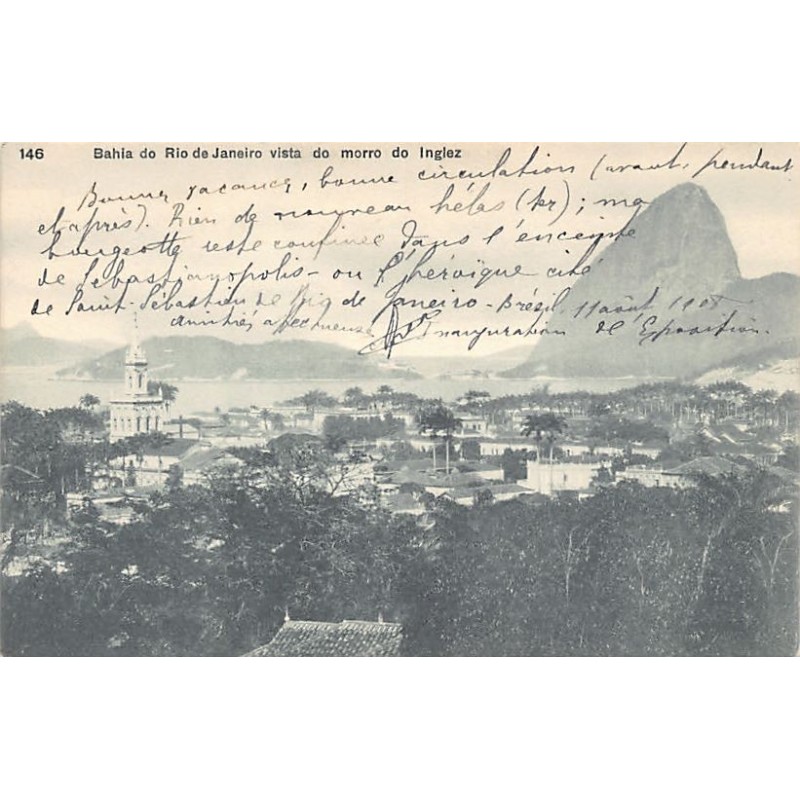 146 Bahia do Rio de Janeiro vista do morro do Inglez
Bonnes vacances, bonne circulation (avant, pendant
et après). Rien de nouveau hélas (ter); ma
bougeotte reste confinée dans l'enceinte
de Sébastianopolis - ou l'héroïque cité
de Saint-Sébastien de Rio de Janeiro - Brésil, 11 août 1908
amitiés affectueuses Inauguration de l'Exposition.